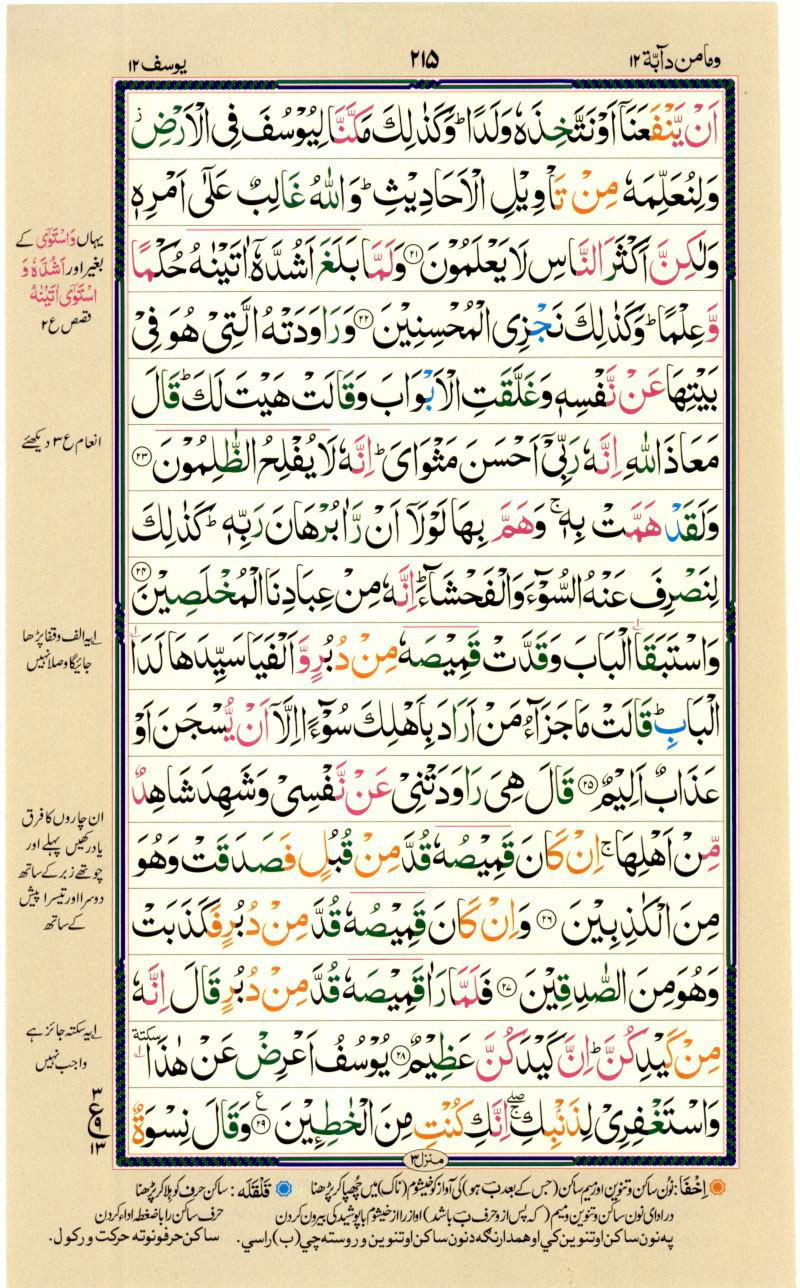 وما من دآبة ۱۲
۲۱۵
یوسف ۱۲
اَنۡ یَّنۡفَعَنَاۤ اَوۡ نَتَّخِذَہٗ وَلَدًا ؕ وَکَذٰلِکَ مَکَّنَّا لِیُوۡسُفَ فِی الۡاَرۡضِ ۫
وَلِنُعَلِّمَہٗ مِنۡ تَاۡوِیۡلِ الۡاَحَادِیۡثِ ؕ وَاللّٰہُ غَالِبٌ عَلٰۤی اَمۡرِہٖ
وَلٰکِنَّ اَکۡثَرَ النَّاسِ لَا یَعۡلَمُوۡنَ ﴿۲۱﴾ وَلَمَّا بَلَغَ اَشُدَّہٗۤ اٰتَیۡنٰہُ حُکۡمًا
وَّ عِلۡمًا ؕ وَکَذٰلِکَ نَجۡزِی الۡمُحۡسِنِیۡنَ ﴿۲۲﴾ وَرَاوَدَتۡہُ الَّتِیۡ ہُوَ فِیۡ
بَیۡتِہَا عَنۡ نَّفۡسِہٖ وَغَلَّقَتِ الۡاَبۡوَابَ وَقَالَتۡ ہَیۡتَ لَکَ ؕ قَالَ
مَعَاذَ اللّٰہِ اِنَّہٗ رَبِّیۡۤ اَحۡسَنَ مَثۡوَایَ ؕ اِنَّہٗ لَا یُفۡلِحُ الظّٰلِمُوۡنَ ﴿۲۳﴾
وَلَقَدۡ ہَمَّتۡ بِہٖ ۚ وَہَمَّ بِہَا لَوۡلَاۤ اَنۡ رَّاٰ بُرۡہَانَ رَبِّہٖ ؕ کَذٰلِکَ
لِنَصۡرِفَ عَنۡہُ السُّوۡٓءَ وَالۡفَحۡشَآءَ ؕ اِنَّہٗ مِنۡ عِبَادِنَا الۡمُخۡلَصِیۡنَ ﴿۲۴﴾
وَاسۡتَبَقَا الۡبَابَ وَقَدَّتۡ قَمِیۡصَہٗ مِنۡ دُبُرٍ وَّ اَلۡفَیَا سَیِّدَہَا لَدَا
الۡبَابِ ؕ قَالَتۡ مَا جَزَآءُ مَنۡ اَرَادَ بِاَہۡلِکَ سُوۡٓءًا اِلَّاۤ اَنۡ یُّسۡجَنَ اَوۡ
عَذَابٌ اَلِیۡمٌ ﴿۲۵﴾ قَالَ ہِیَ رَاوَدَتۡنِیۡ عَنۡ نَّفۡسِیۡ وَشَہِدَ شَاہِدٌ
مِّنۡ اَہۡلِہَا ۚ اِنۡ کَانَ قَمِیۡصُہٗ قُدَّ مِنۡ قُبُلٍ فَصَدَقَتۡ وَہُوَ
مِنَ الۡکٰذِبِیۡنَ ﴿۲۶﴾ وَاِنۡ کَانَ قَمِیۡصُہٗ قُدَّ مِنۡ دُبُرٍ فَکَذَبَتۡ
وَہُوَ مِنَ الصّٰدِقِیۡنَ ﴿۲۷﴾ فَلَمَّا رَاٰ قَمِیۡصَہٗ قُدَّ مِنۡ دُبُرٍ قَالَ اِنَّہٗ
مِنۡ کَیۡدِکُنَّ ؕ اِنَّ کَیۡدَکُنَّ عَظِیۡمٌ ﴿۲۸﴾ یُوۡسُفُ اَعۡرِضۡ عَنۡ ہٰذَا ٜ سکتة
وَاسۡتَغۡفِرِیۡ لِذَنۡۢبِکِ ۚۖ اِنَّکِ کُنۡتِ مِنَ الۡخٰطِـِٕیۡنَ ﴿۲۹﴾ ع وَقَالَ نِسۡوَۃٌ
منزل ۳
یہاں وَاسۡتَوٰۤی کے
بغیر اور اَشُدَّہٗ وَ
اسۡتَوٰۤی اٰتَیۡنٰہُ
قصص ع ۲
انعام ع ۳ دیکھئے
لے یہ الف وقفا پڑھا
جائیگا وصلا نہیں
ان چاروں کا فرق
یاد رکھیں پہلے اور
چوتھے زبر کے ساتھ
دوسرا اور تیسرا پیش
کے ساتھ
لے یہ سکتہ جائز ہے
واجب نہیں
۳
ع
۹
۱۳
اِخۡفَا: نون ساکن و تنوین اور میم ساکن (جس کے بعد بَ ہو) کی آواز کو خیشوم (ناک) میں چھپا کر پڑھنا
قَلۡقَلَہ: ساکن حرف کو ہلا کر پڑھنا
در ادای نون ساکن و تنوین و میم (که پس از و حرف بَ باشد) آواز را از خیشوم با پوشیدگی بیرون کردن
حرف ساکن را با ضغطه ادا کردن
په نون ساکن او تنوین کي او همدارنګه د نون ساکن او تنوین و روسته چي (ب) راسي.
ساکن حرفونو ته حرکت ورکول.